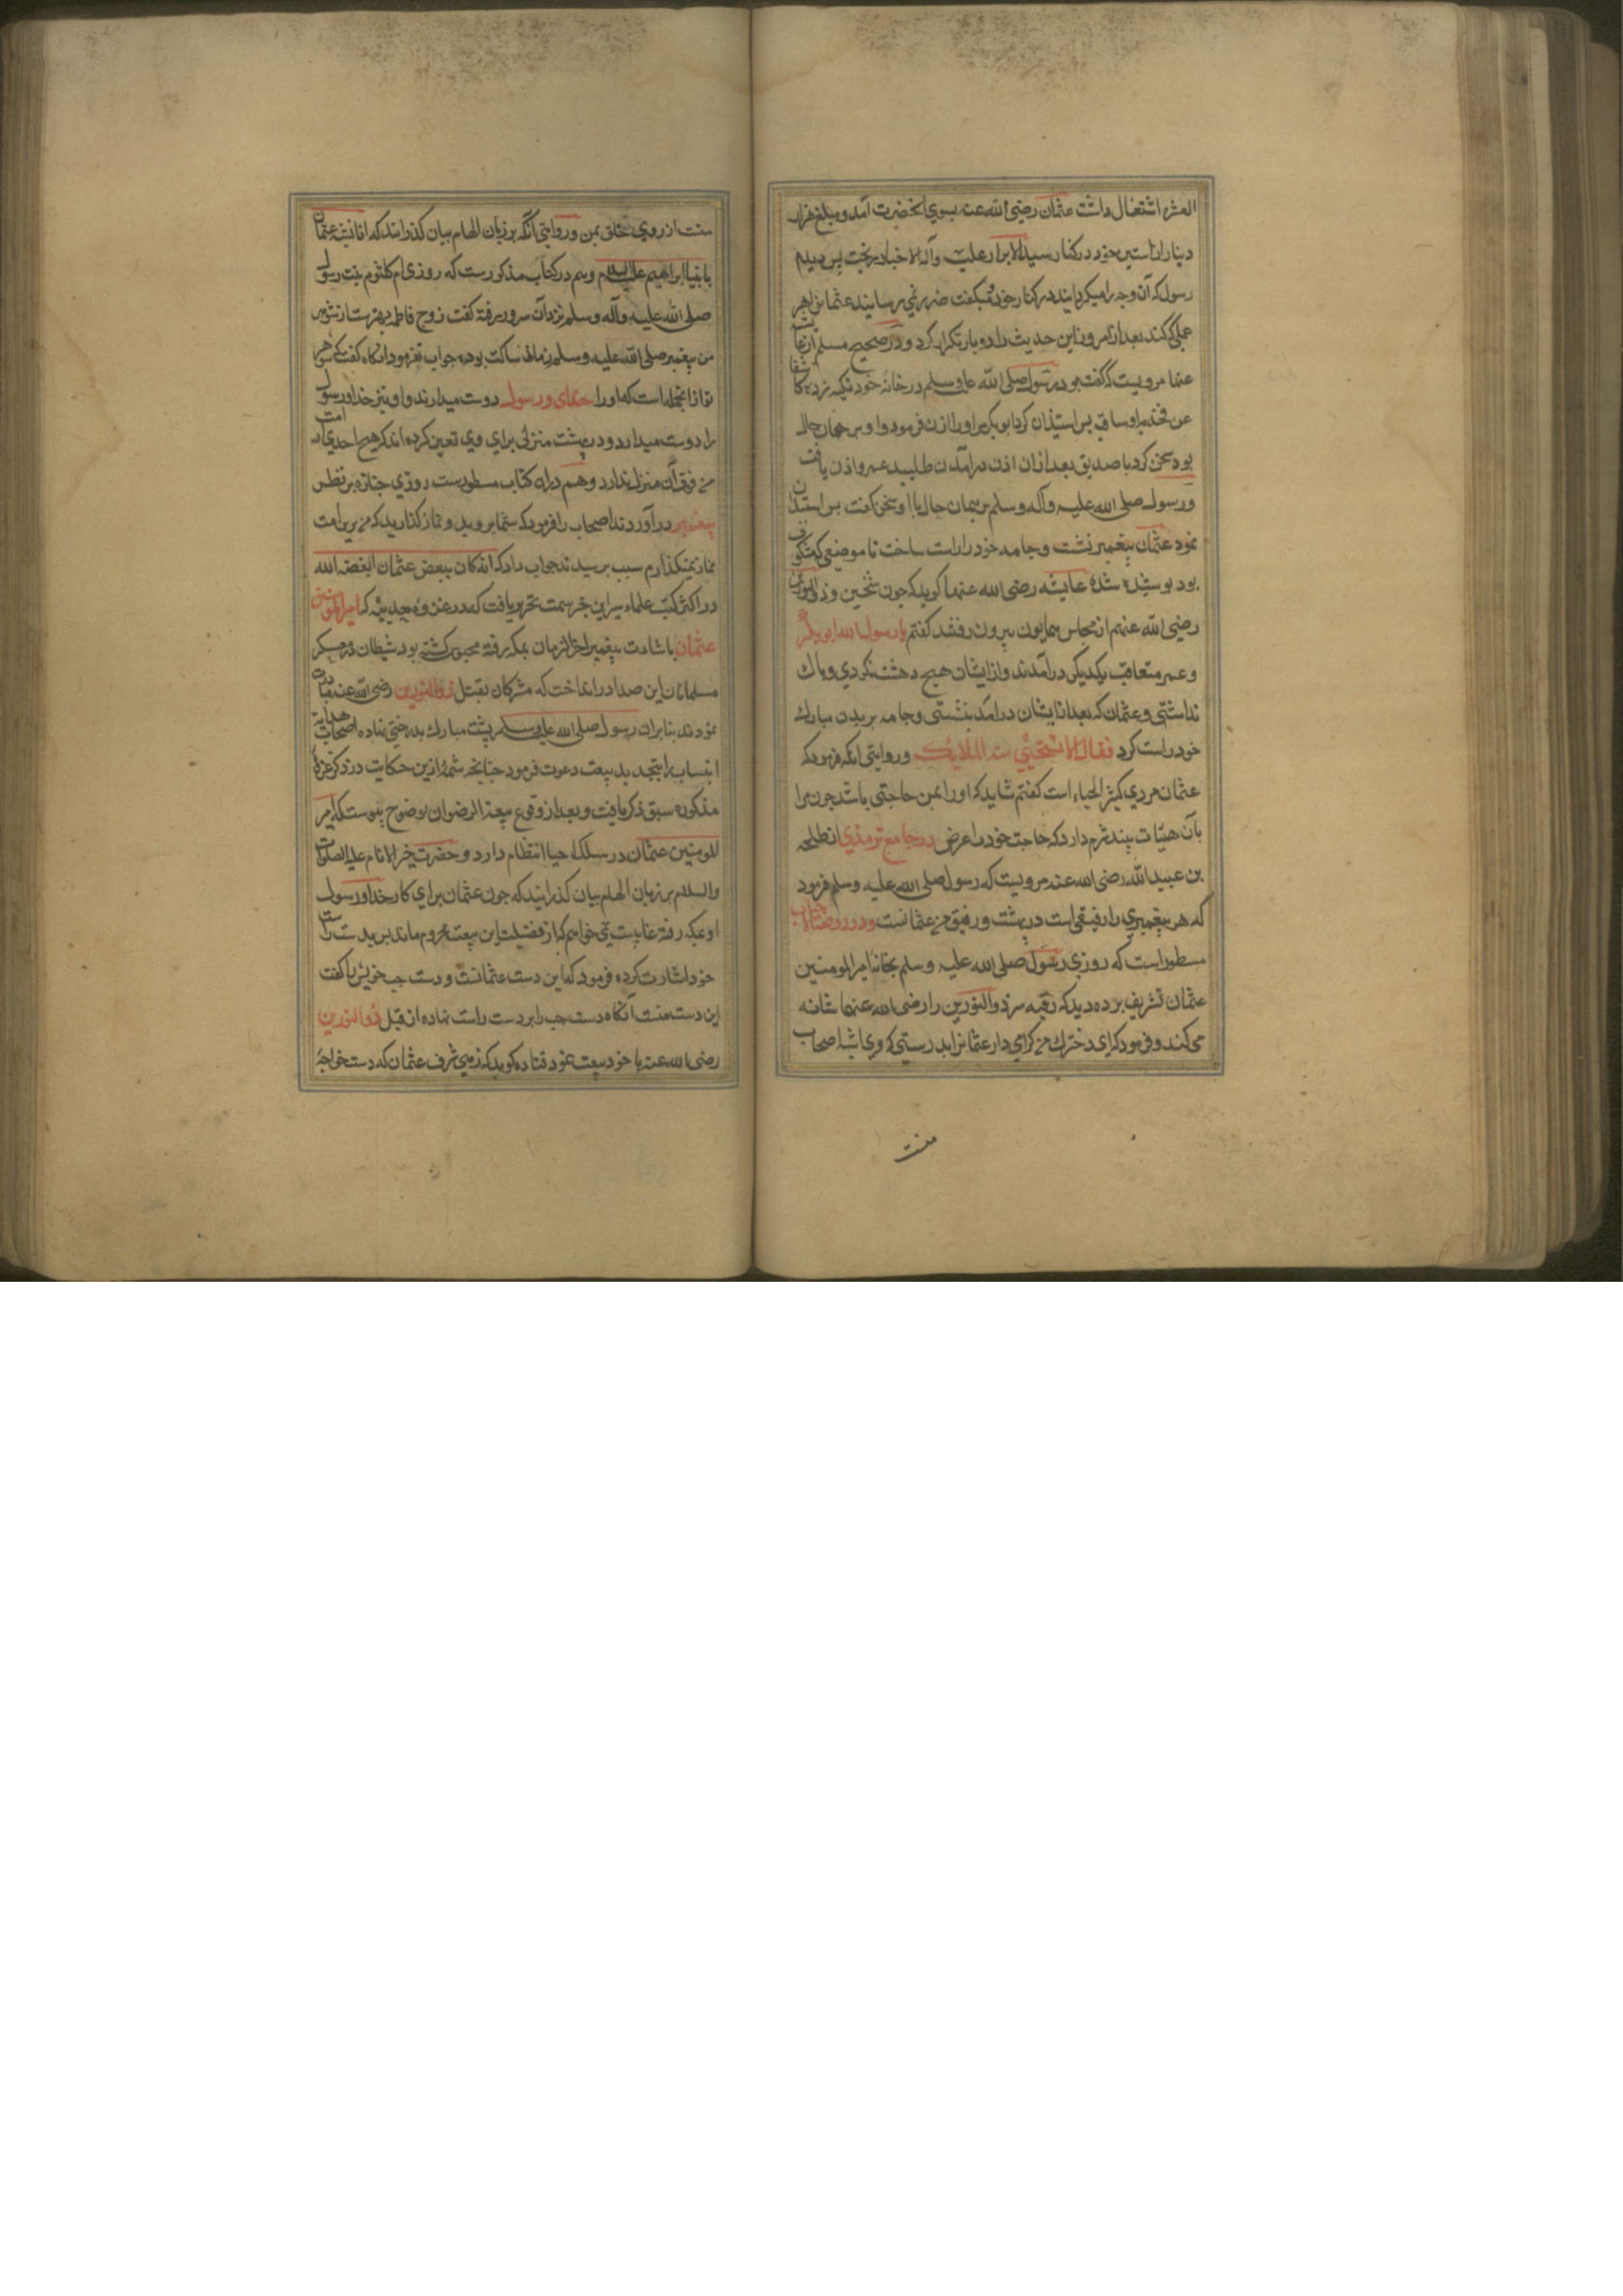 العشره اشتغال داشت عثمان رضی الله عنه بسوی آنحضرت آمد و مبلغ هزار
دینار از آستین خود در کنار سید الابرار علیه وآله الاخیار بریخت پس دیدم
رسول که آن وجه را میکردانید در کنار خود و میکفت ضرر نمی رساند عثمانرا هر
عملی که کند بعد از امروز این حدیث را دو بار تکرار کرد و در صحیح مسلم از عایشه
مرویست که گفت بود رسول صلی الله علیه وسلم در خانه خود تکیه زده کاشفا
عن فخذیه او ساقیه بس استیذان کرد ابوبکر او را اذن فرمود و او بر همان حال
بود سخن کرد با صدیق بعد ازان اذن درآمدن طلبید عمر و اذن یافت
و رسول صلی الله علیه وآله وسلم بر همان حال با او سخن گفت بس استیذان
نمود عثمان پیغمبر نشست و جامه خود را راست ساخت تا موضعی که مکشوف
بود پوشیده شد عایشه رضی الله عنها کوید که جون شیخین و ذی النورین
رضی الله عنهم از مجلس همایون بیرون رفتند کفتم یا رسول الله ابو بکر
و عمر متعاقب یکدیکر درآمدند و از ایشان هیج دهشت نکردی و باک
نداشتی و عثمان که بعد از ایشان درآمد بنشستی و جامه بر بدن مبارک
خود راست کرد فقال الا استحیی منه الملایکه و روایتی آنکه فرمود که
عثمان مردی کثیر الحیاء است کفتم شاید که او را بمن حاجتی باشد جون مرا
بآن هیات بیند شرم دارد که حاجت خود را عرض در جامع ترمذی از طلحه
بن عبید الله رضی الله عنه مرویست که رسول صلی الله علیه وسلم فرمود
که هر پیغمبری را رفیقی است در بهشت و رفیق من عثمانست و در روضة الاحباب
مسطور است که روزی رسول صلی الله علیه وسلم بخانه امیر المومنین
عثمان تشریف برده دید که رقیه سر ذوالنورین را رضی الله عنهما شانه
می کند و فرمود که ای دخترک من کرامی دار عثمانرا بدرستی که وی اشبه اصحاب
منست
منست از روی خلق بمن و روایتی آنکه بر زبان الهام بیان کذرانند که انا نشبه عثمان
بابینا ابراهیم علیه السلام وهم در کتاب مذکورست که روزی ام کلثوم بنت رسول
صلی الله علیه وآله وسلم نزد آن سرور رفته گفت زوج فاطمه بهترست از شوهر
من پیغمبر صلی الله علیه وسلم زمانی ساکت بوده جواب نفرمود آنگاه گفت که شوهر
تو از آنجمله است که او را خدای و رسول دوست میدارند و او نیز خدا و رسول
را دوست میدارد و در بهشت منزلی برای وی تعین کرده اند که هیج احدی از امت
من فوق آن منزل ندارد و هم در آن کتاب مسطورست روزی جنازه بر نظر
پیغمبر درآوردند اصحاب را فرمود که شما بروید و نماز گذارید که من برین امت
نماز نمیکذارم سبب پرسیدند جواب داد که انه کان یبغض عثمان ابغضه الله
در اکثر کتب علماء سیر این خبر سمت تحریر یافت که در غزوه حدیبیه که امیر المومنین
عثمان باشارت پیغمبر آخر الزمان بمکه رفته محبوس کشته بود شیطان در معسکر
مسلمانان این صدا در انداخت که مشرکان بقتل ذوالنورین رضی الله عنه مبادرت
نمودند بنابران رسول صلی الله علیه وسلم پشت مبارک بدرختی نهاده اصحاب هدایت
انتساب را بتجدید بیعت دعوت فرمود جنانجه شمه ازین حکایت در ذکر غزوه
مذکوره سبق ذکر یافت و بعد از وقوع بیعة الرضوان بوضوح پیوست که امیر
المومنین عثمان در سلک احیا انتظام دارد و حضرت خیر الانام علیه الصلوات
والسلام بر زبان الهام بیان کذرانید که جون عثمان برای کار خدا و رسول
او بمکه رفته غایبست نمی خواهم که از فضیلت این بیعت محروم ماند پس بدست راست
خود اشارت کرده فرمود که این دست عثمانست و دست جب خویش را گفت
این دست منست آنگاه دست جب را بر دست راست نهاده از قبل ذوالنورین
رضی الله عنه با خود بیعت نمود قتاده کوید که زهی شرف عثمان که دست خواجه